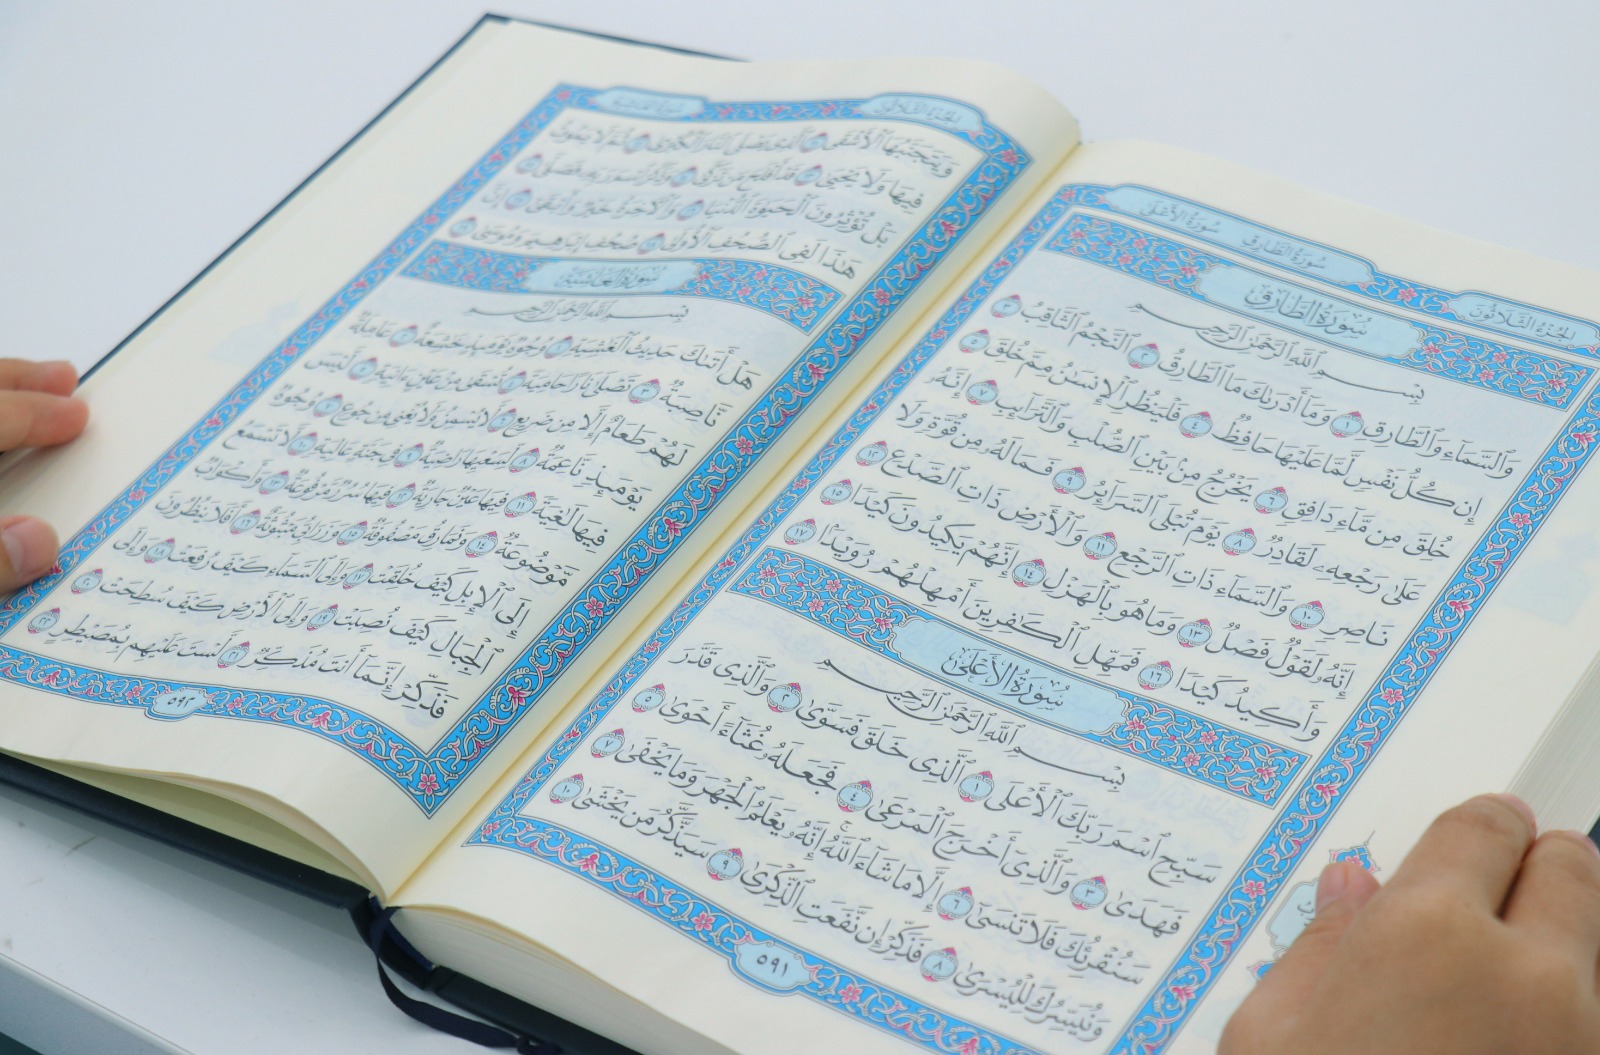 سُورَةُ الأَعْلَىٰ سُورَةُ الطَّارِقِ
الجُزْءُ الثَّلَاثُونَ
سُورَةُ الطَّارِقِ
بِسْمِ اللَّهِ الرَّحْمَٰنِ الرَّحِيمِ
وَالسَّمَاءِ وَالطَّارِقِ ١ وَمَا أَدْرَىٰكَ مَا الطَّارِقُ ٢ النَّجْمُ الثَّاقِبُ ٣
إِن كُلُّ نَفْسٍ لَّمَّا عَلَيْهَا حَافِظٌ ٤ فَلْيَنظُرِ الْإِنسَٰنُ مِمَّ خُلِقَ ٥
خُلِقَ مِن مَّاءٍ دَافِقٍ ٦ يَخْرُجُ مِن بَيْنِ الصُّلْبِ وَالتَّرَائِبِ ٧ إِنَّهُ
عَلَىٰ رَجْعِهِ لَقَادِرٌ ٨ يَوْمَ تُبْلَى السَّرَائِرُ ٩ فَمَا لَهُ مِن قُوَّةٍ وَلَا
نَاصِرٍ ١٠ وَالسَّمَاءِ ذَاتِ الرَّجْعِ ١١ وَالْأَرْضِ ذَاتِ الصَّدْعِ ١٢
إِنَّهُ لَقَوْلٌ فَصْلٌ ١٣ وَمَا هُوَ بِالْهَزْلِ ١٤ إِنَّهُمْ يَكِيدُونَ كَيْدًا ١٥
وَأَكِيدُ كَيْدًا ١٦ فَمَهِّلِ الْكَٰفِرِينَ أَمْهِلْهُمْ رُوَيْدًا ١٧
سُورَةُ الأَعْلَىٰ
بِسْمِ اللَّهِ الرَّحْمَٰنِ الرَّحِيمِ
سَبِّحِ اسْمَ رَبِّكَ الْأَعْلَى ١ الَّذِي خَلَقَ فَسَوَّىٰ ٢ وَالَّذِي قَدَّرَ
فَهَدَىٰ ٣ وَالَّذِي أَخْرَجَ الْمَرْعَىٰ ٤ فَجَعَلَهُ غُثَاءً أَحْوَىٰ ٥
سَنُقْرِئُكَ فَلَا تَنسَىٰ ٦ إِلَّا مَا شَاءَ اللَّهُ إِنَّهُ يَعْلَمُ الْجَهْرَ وَمَا يَخْفَىٰ ٧
وَنُيَسِّرُكَ لِلْيُسْرَىٰ ٨ فَذَكِّرْ إِن نَّفَعَتِ الذِّكْرَىٰ ٩ سَيَذَّكَّرُ مَن يَخْشَىٰ ١٠
٥٩١
الجُزْءُ الثَّلَاثُونَ
وَيَتَجَنَّبُهَا الْأَشْقَى ١١ الَّذِي يَصْلَى النَّارَ الْكُبْرَىٰ ١٢ ثُمَّ لَا يَمُوتُ
فِيهَا وَلَا يَحْيَىٰ ١٣ قَدْ أَفْلَحَ مَن تَزَكَّىٰ ١٤ وَذَكَرَ اسْمَ رَبِّهِ فَصَلَّىٰ ١٥
بَلْ تُؤْثِرُونَ الْحَيَوٰةَ الدُّنْيَا ١٦ وَالْآخِرَةُ خَيْرٌ وَأَبْقَىٰ ١٧ إِنَّ
هَٰذَا لَفِي الصُّحُفِ الْأُولَىٰ ١٨ صُحُفِ إِبْرَٰهِيمَ وَمُوسَىٰ ١٩
سُورَةُ الغَاشِيَةِ
بِسْمِ اللَّهِ الرَّحْمَٰنِ الرَّحِيمِ
هَلْ أَتَىٰكَ حَدِيثُ الْغَٰشِيَةِ ١ وُجُوهٌ يَوْمَئِذٍ خَٰشِعَةٌ ٢ عَامِلَةٌ
نَّاصِبَةٌ ٣ تَصْلَىٰ نَارًا حَامِيَةً ٤ تُسْقَىٰ مِنْ عَيْنٍ ءَانِيَةٍ ٥ لَّيْسَ
لَهُمْ طَعَامٌ إِلَّا مِن ضَرِيعٍ ٦ لَّا يُسْمِنُ وَلَا يُغْنِي مِن جُوعٍ ٧ وُجُوهٌ
يَوْمَئِذٍ نَّاعِمَةٌ ٨ لِّسَعْيِهَا رَاضِيَةٌ ٩ فِي جَنَّةٍ عَالِيَةٍ ١٠ لَّا تَسْمَعُ
فِيهَا لَٰغِيَةً ١١ فِيهَا عَيْنٌ جَارِيَةٌ ١٢ فِيهَا سُرُرٌ مَّرْفُوعَةٌ ١٣ وَأَكْوَابٌ
مَّوْضُوعَةٌ ١٤ وَنَمَارِقُ مَصْفُوفَةٌ ١٥ وَزَرَابِيُّ مَبْثُوثَةٌ ١٦ أَفَلَا يَنظُرُونَ
إِلَى الْإِبِلِ كَيْفَ خُلِقَتْ ١٧ وَإِلَى السَّمَاءِ كَيْفَ رُفِعَتْ ١٨ وَإِلَى
الْجِبَالِ كَيْفَ نُصِبَتْ ١٩ وَإِلَى الْأَرْضِ كَيْفَ سُطِحَتْ ٢٠
فَذَكِّرْ إِنَّمَا أَنتَ مُذَكِّرٌ ٢١ لَّسْتَ عَلَيْهِم بِمُصَيْطِرٍ ٢٢
٥٩٢